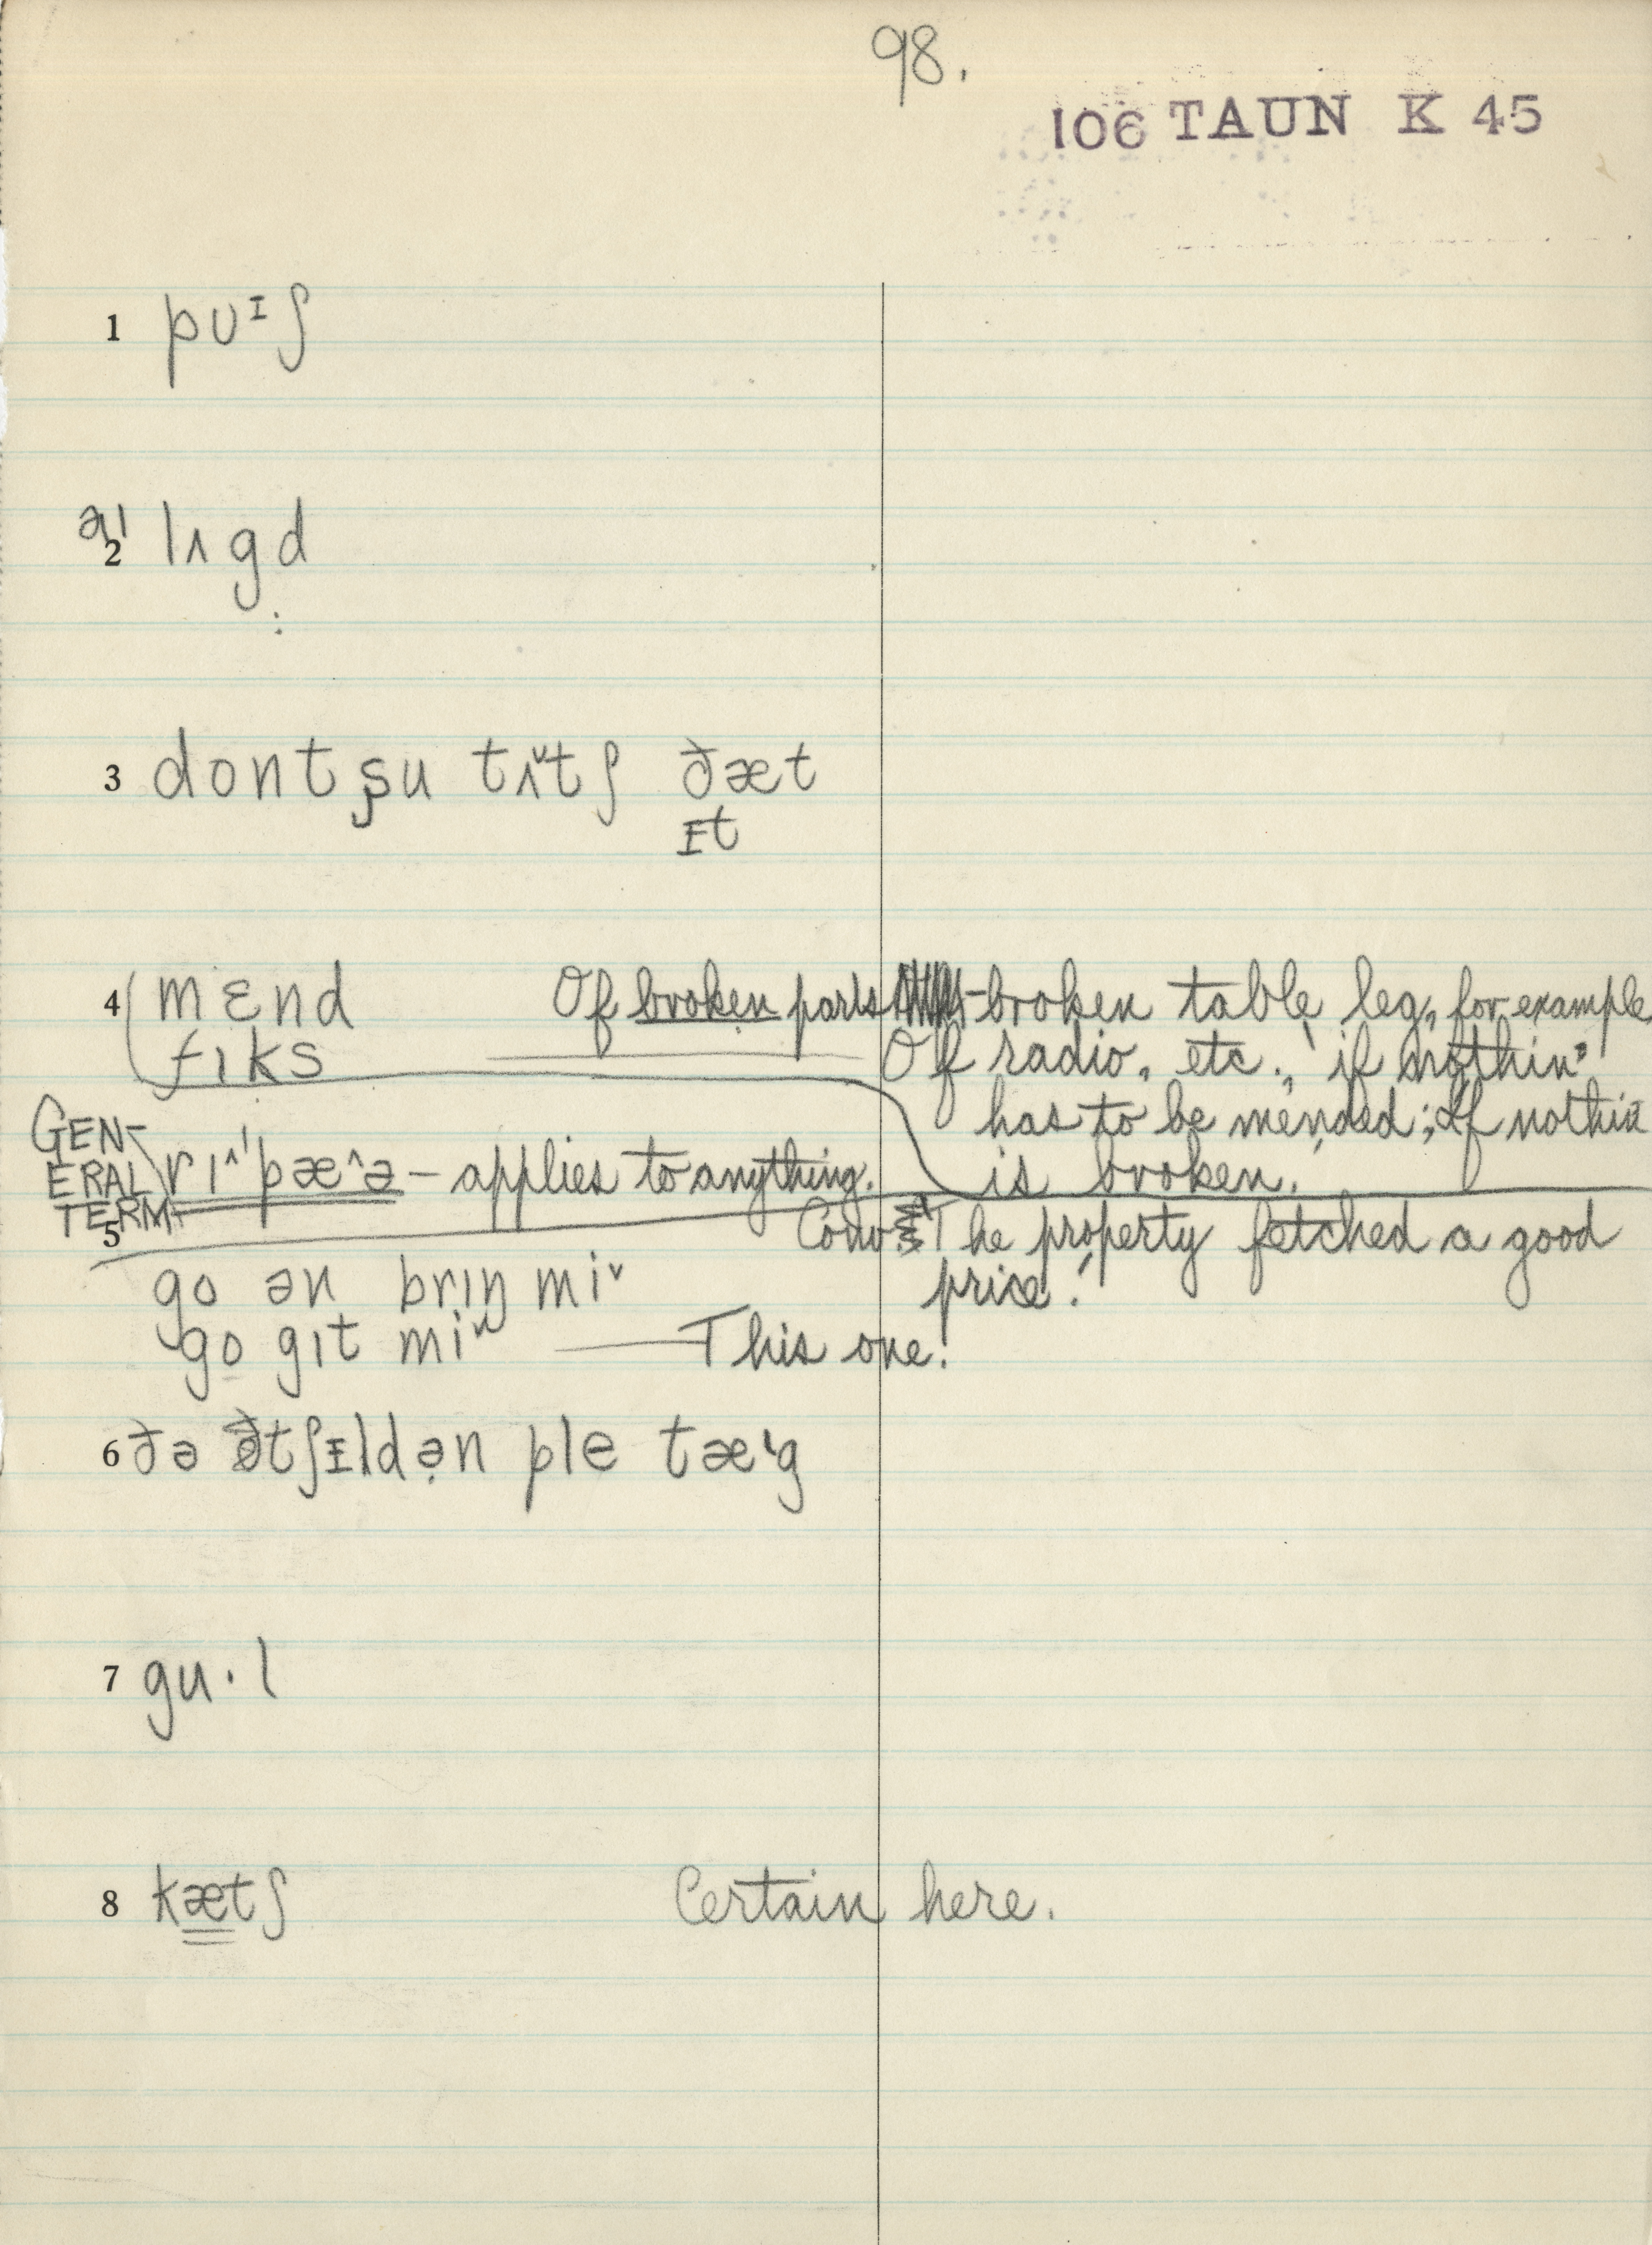 98.
106 TAUN K 45
1 pʊᶦʃ
ə' 2 lʌgd
3 dont ʃu tʌ̌tʃ ðæt
ɪt
4 mɛnd Of broken parts - broken table leg, for example
fɪks Of radio, etc., if nothin'
has to be mended; If nothin
GENERAL TERM rɪ^'pæ^ə – applies to anything. is broken.
5 Conv. The property fetched a good
go ən brɪŋ miˇ price.
go gɪt miˇ — This one!
6 ðə tʃɪldən ple tæ'g
7 gu·l
8 kætʃ Certain here.